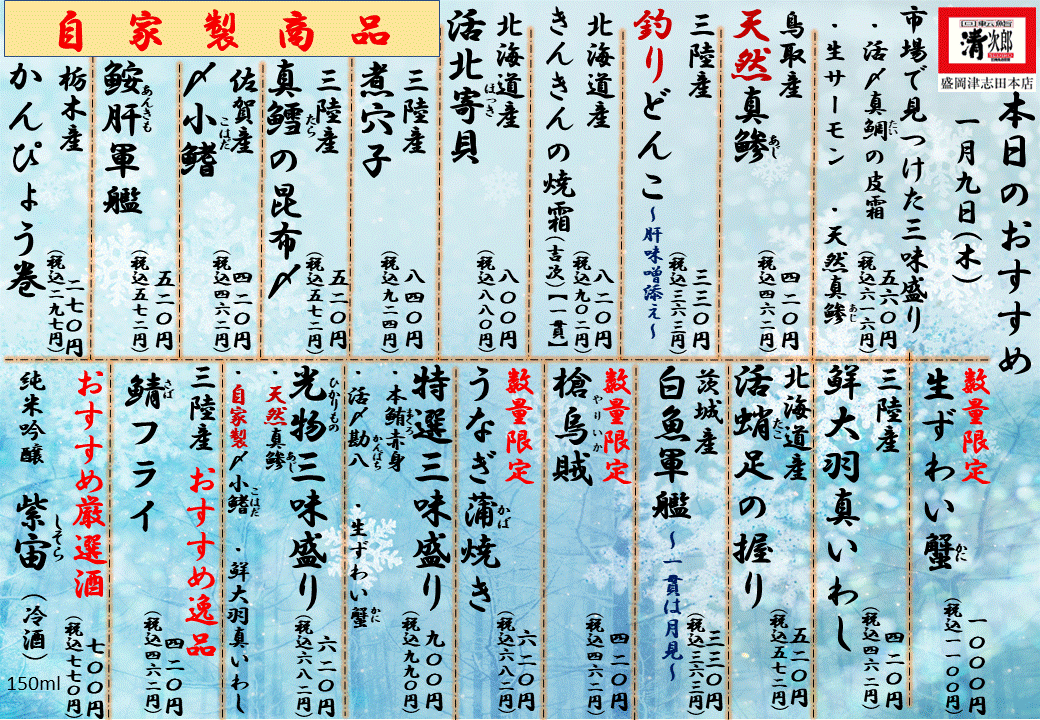 回転鮨
清次郎
盛岡津志田本店
本日のおすすめ
一月九日(木)
市場で見つけた三味盛り
・活〆真鯛の皮霜
たい
・生サーモン ・天然真鯵
あじ
五六〇円
(税込六一六円)
鳥取産
天然真鯵
あじ
四二〇円
(税込四六二円)
三陸産
釣りどんこ
~肝味噌添え~
三三〇円
(税込三六三円)
北海道産
きんきんの焼霜(吉次)【一貫】
八二〇円
(税込九〇二円)
北海道産
活北寄貝
ほっき
八〇〇円
(税込八八〇円)
自家製商品
三陸産
煮穴子
八四〇円
(税込九二四円)
三陸産
真鱈の昆布〆
たら
五二〇円
(税込五七二円)
佐賀産
〆小鰭
こはだ
四二〇円
(税込四六二円)
鮟肝軍艦
あんきも
五二〇円
(税込五七二円)
栃木産
かんぴょう巻
二七〇円
(税込二九七円)
数量限定
生ずわい蟹
かに
一〇〇〇円
(税込一一〇〇円)
三陸産
鮮大羽真いわし
四二〇円
(税込四六二円)
北海道産
活蛸足の握り
たこ
五二〇円
(税込五七二円)
茨城産
白魚軍艦
~一貫は月見~
三三〇円
(税込三六三円)
数量限定
槍烏賊
やりいか
四二〇円
(税込四六二円)
数量限定
うなぎ蒲焼き
かば
六二〇円
(税込六八二円)
特選三味盛り
・本鮪赤身
まぐろ
・活〆勘八
かんぱち
・生ずわい蟹
かに
九〇〇円
(税込九九〇円)
光物三味盛り
ひかりもの
・天然真鯵
あじ
・自家製〆小鰭
こはだ
・鮮大羽真いわし
六二〇円
(税込六八二円)
おすすめ逸品
三陸産
鯖フライ
さば
四二〇円
(税込四六二円)
おすすめ厳選酒
純米吟醸 紫宙(冷酒)
しそら
150ml
七〇〇円
(税込七七〇円)